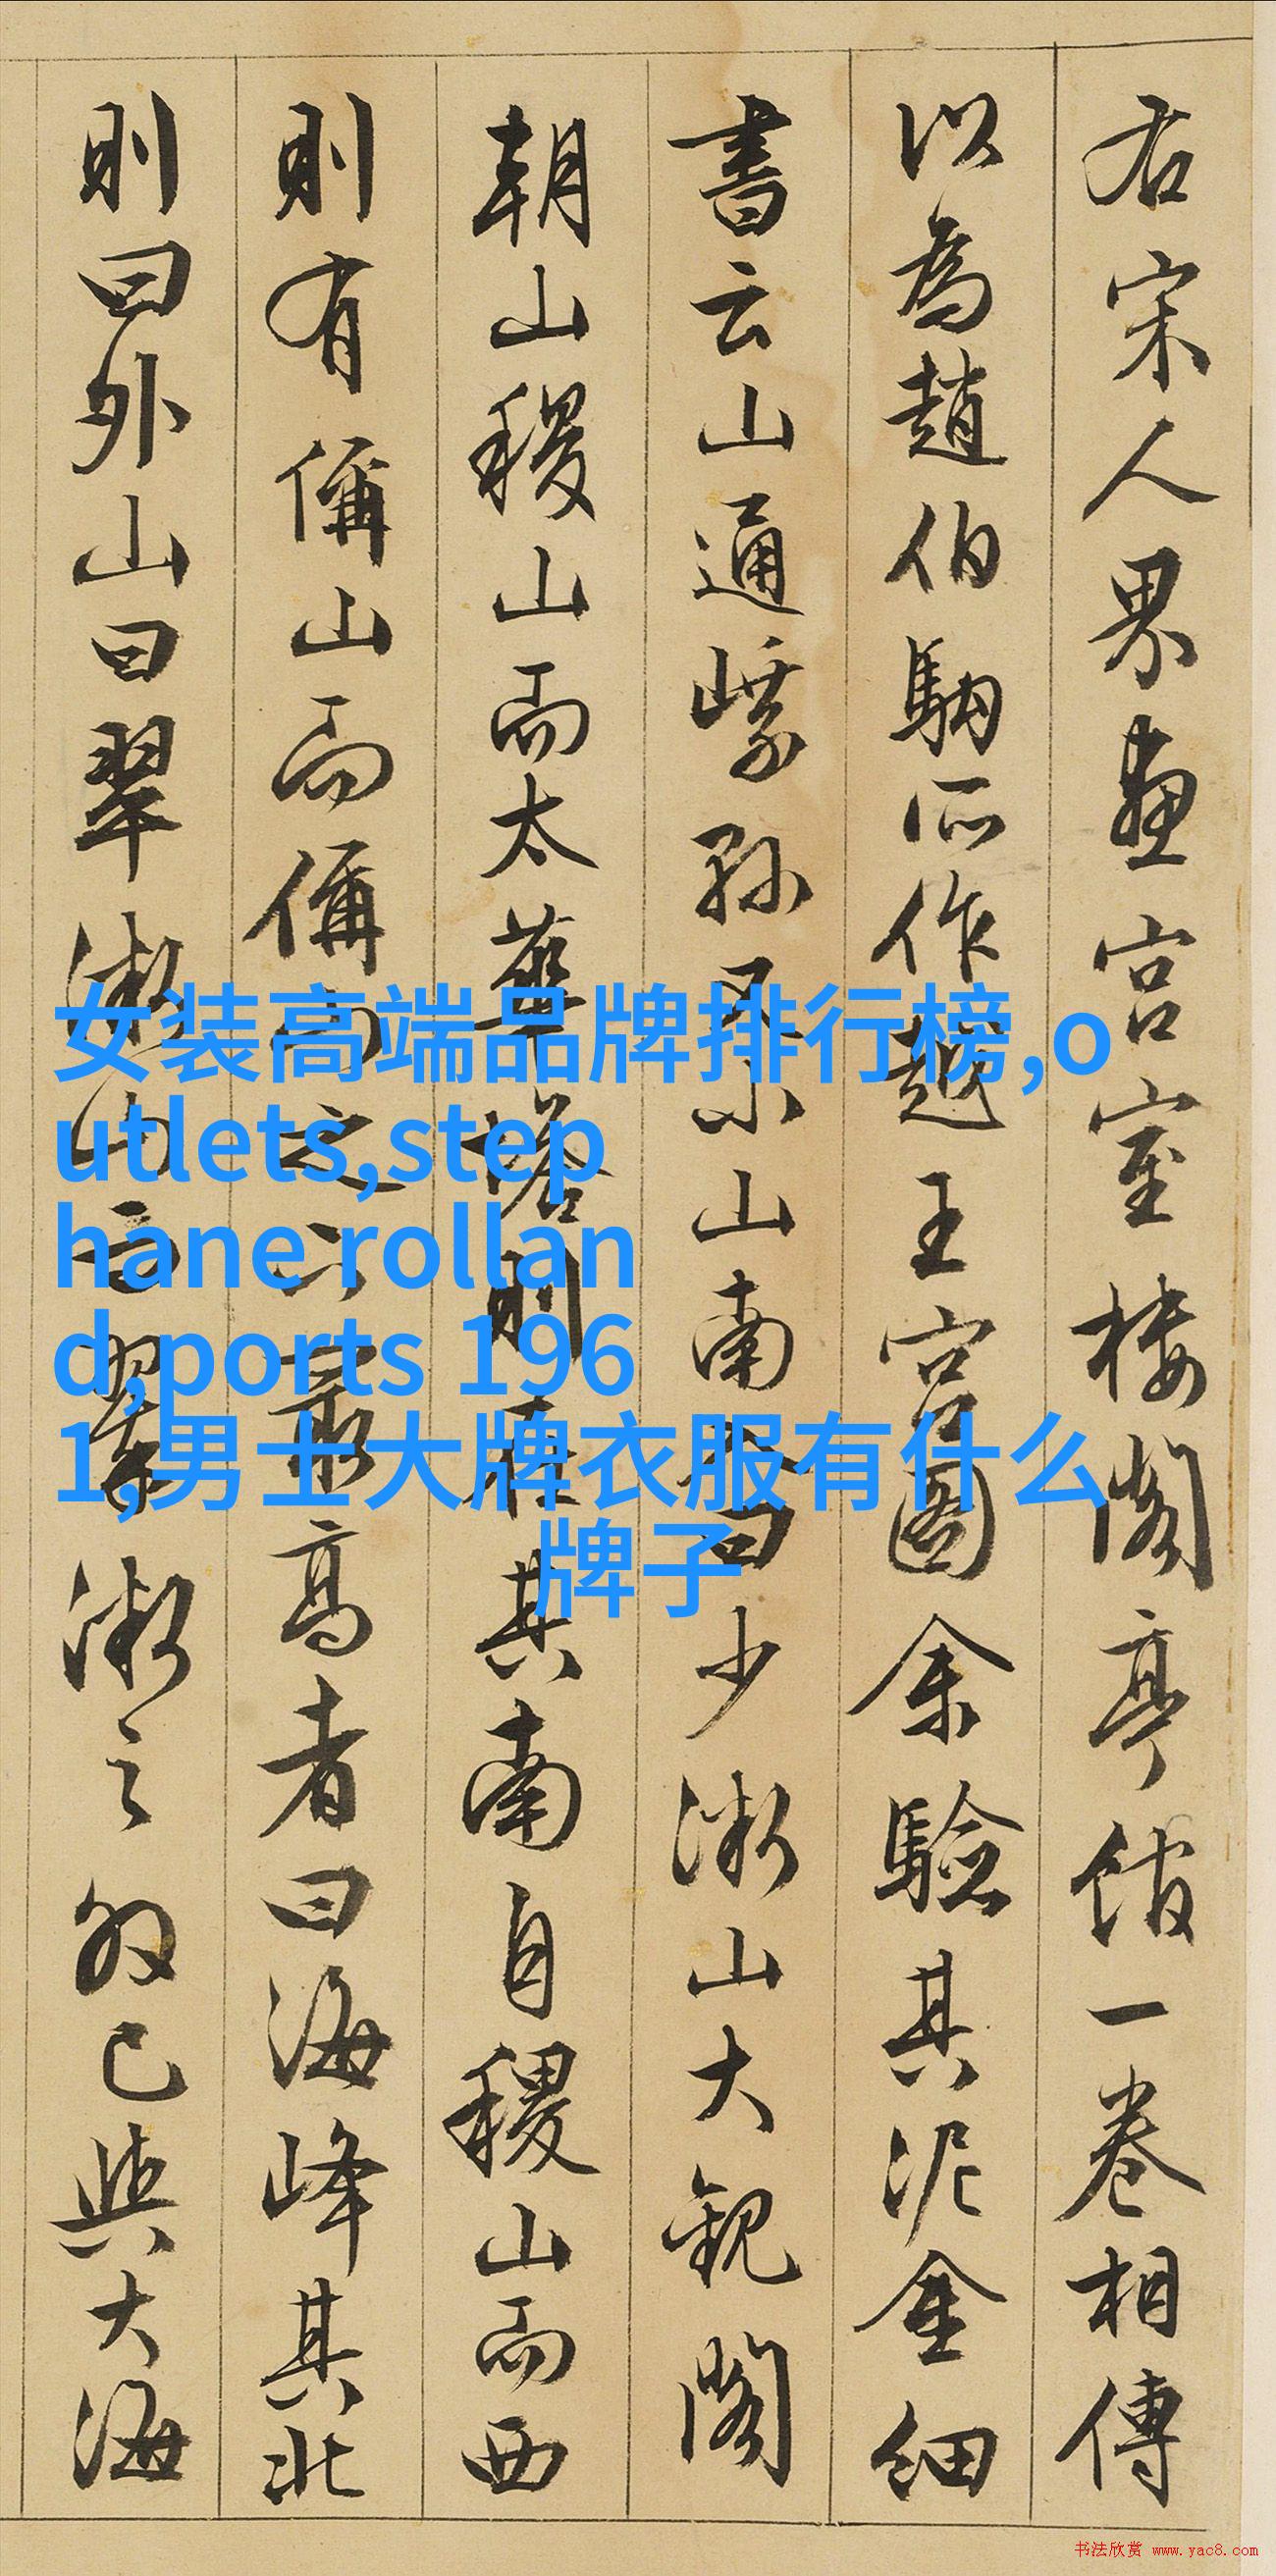 右宋人界画宫室楼阁亭馆一卷相傳
以為趙伯駒所作越王宫圖余驗其泥金細
書云山通
山南曰少漱山大観閣
朝山稷山而太華
則 其南自稷山而西
則有偁山而偁
最高者曰海峰其北
則曰外山曰翠漱
漱之 已與大海
女装高端品牌排行榜,o
utlets,step
hane rollan
d,ports 196
1,男士大牌衣服有什么
牌子
书法欣赏 www.yac8.com